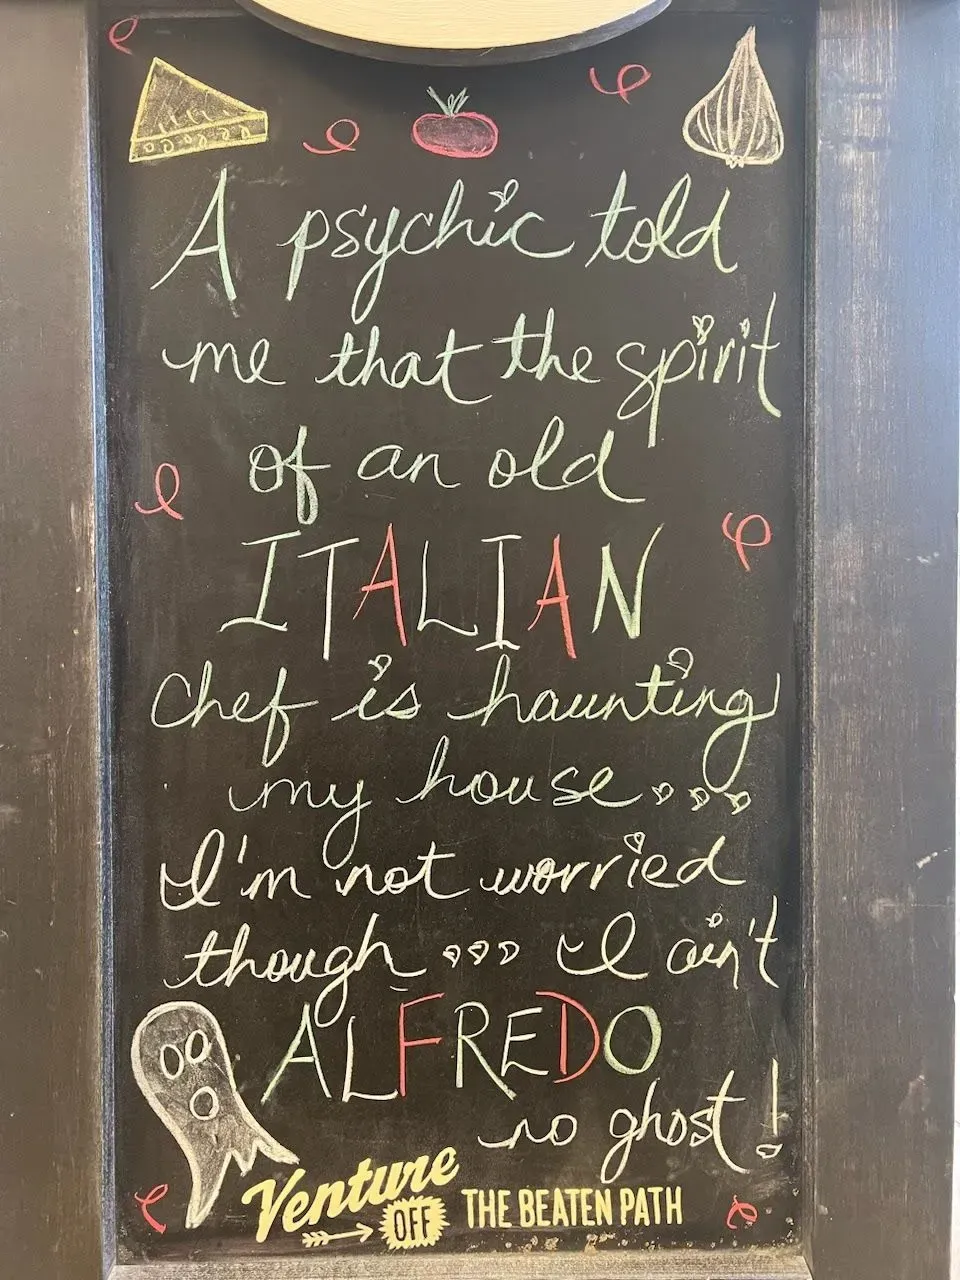 A psychic told
me that the spirit
of an old
ITALIAN
chef is haunting
my house...
I'm not worried
though... I ain't
ALFREDO
no ghost!
Venture OFF THE BEATEN PATH